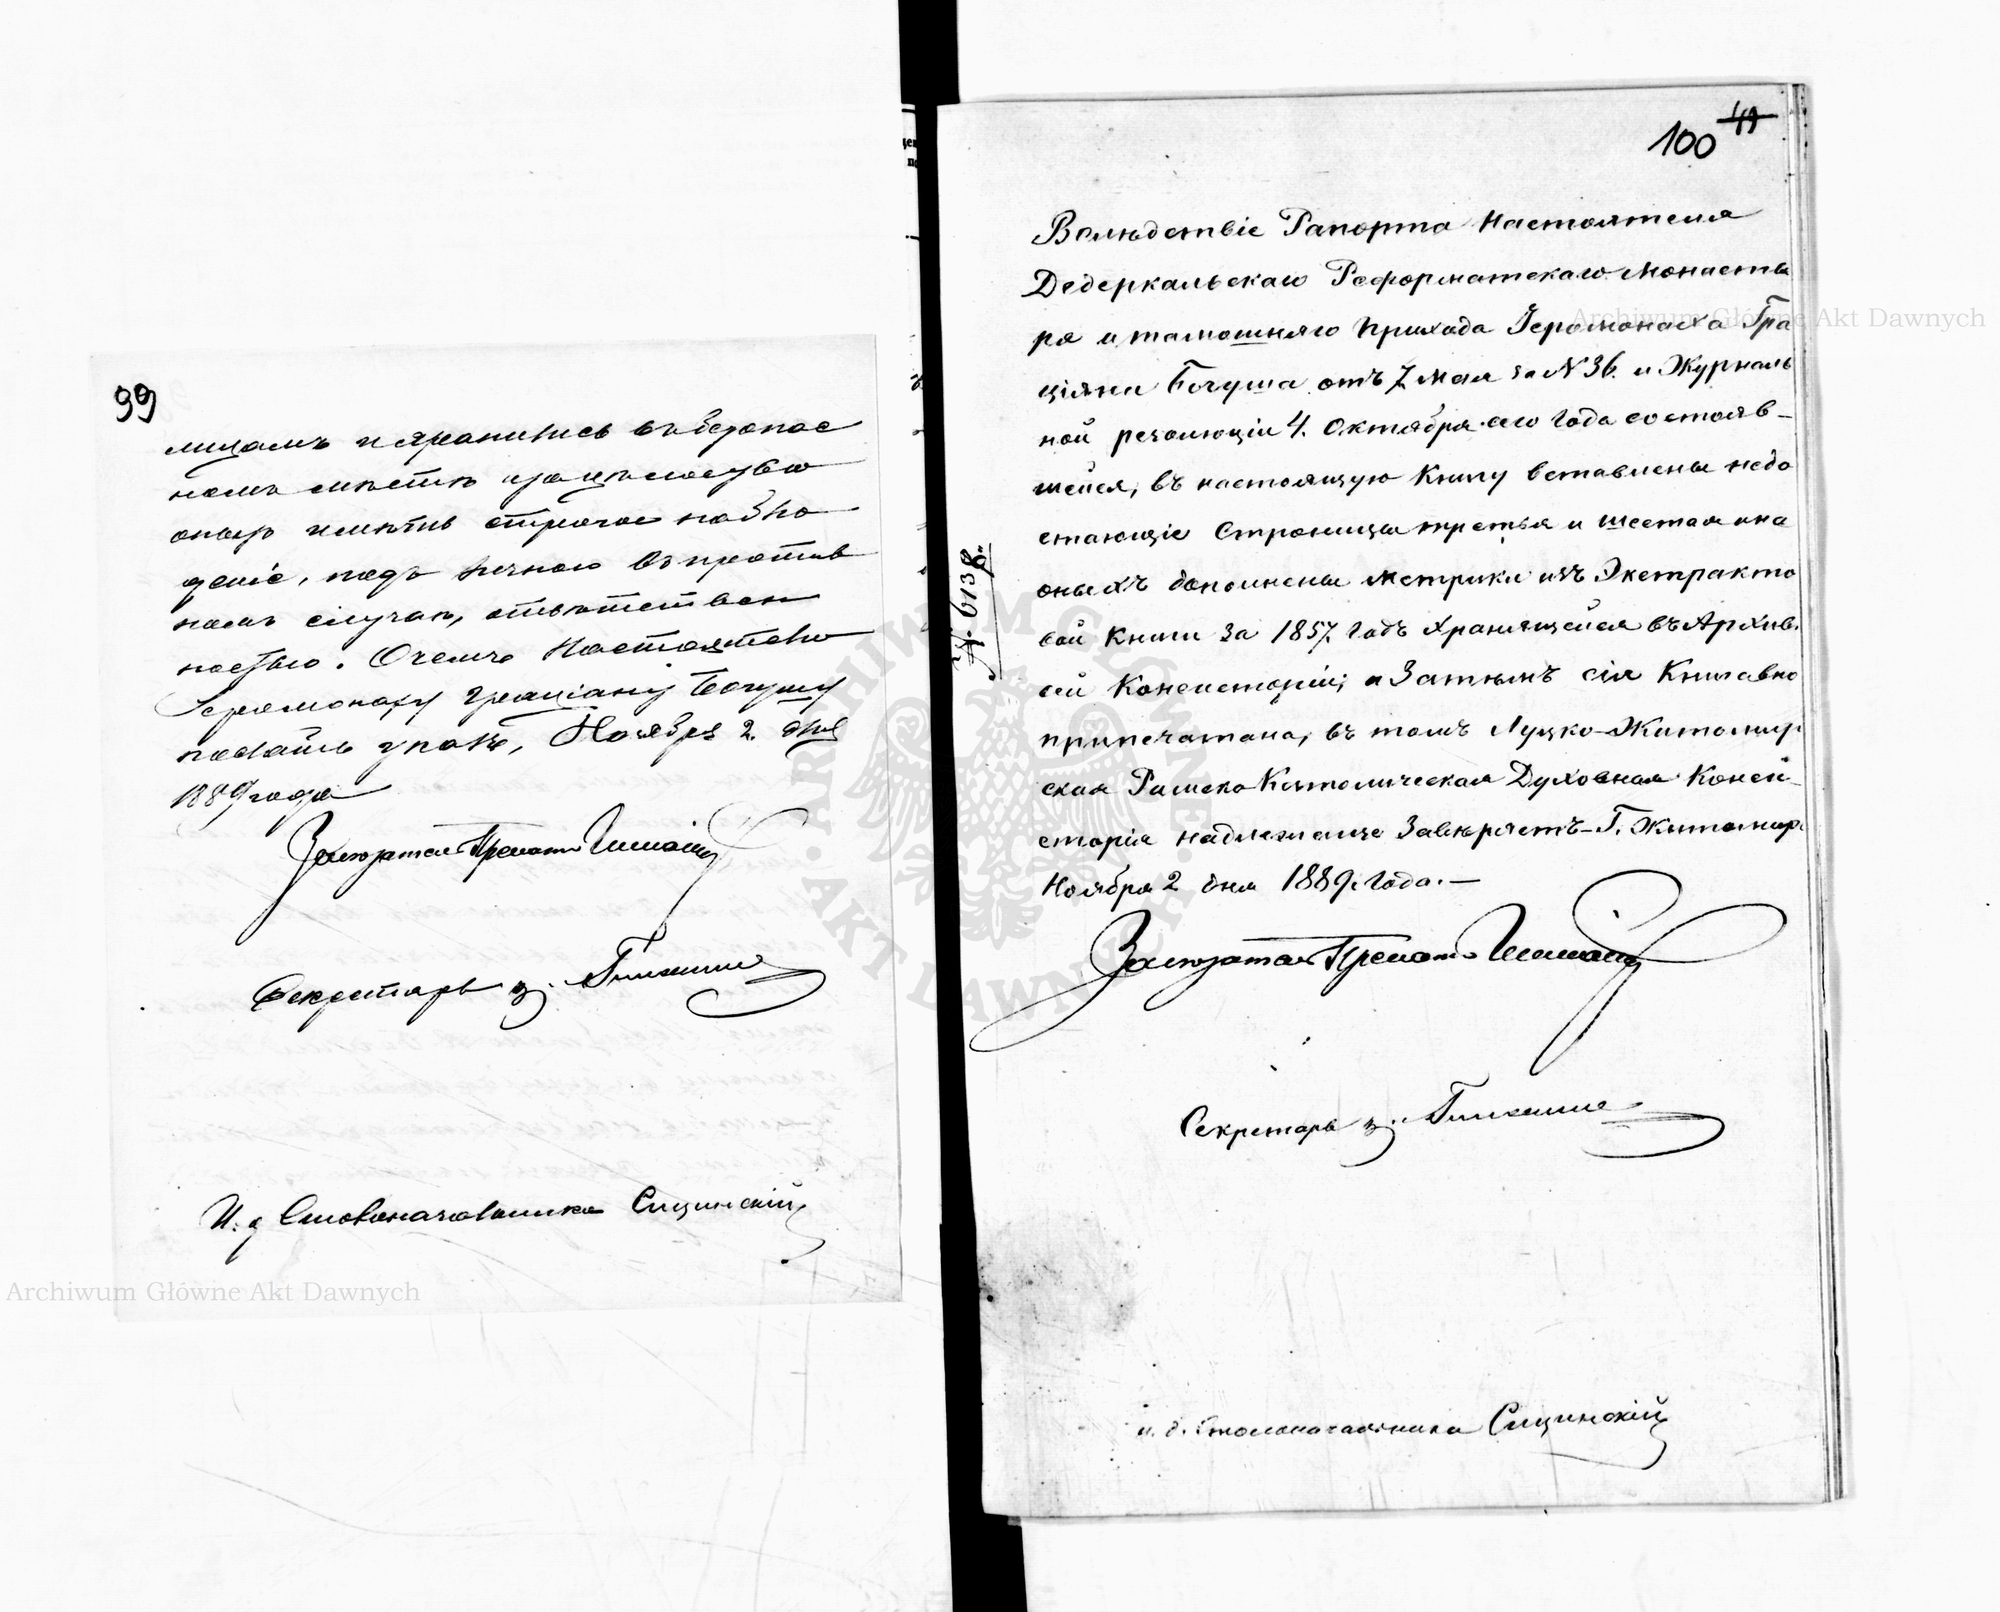 99
лицамъ и хранились въ безопас
номъ мѣстѣ за цѣлостью
оныхъ имѣть строгое наблю
деніе, подъ личною въ против
номъ случаѣ, отвѣтствен
ностью. О чемъ Настоятелю
Іеромонаху Граціану Богушу
послать указъ, Ноября 2 дня
1889 года
Засѣдатель Прелатъ
Секретарь
И. д Столоначальника Сицинскій
Archiwum Główne Akt Dawnych
100 49
Вслѣдствіе Рапорта Настоятеля
Дедеркальскаго Реформатскаго Монасты
ря и тамошняго прихода Іеромонаха Гра
ціяна Богуша отъ 7 мая за N 36. и Журналь
ной резолюціи 4. Октября сего года состояв-
шейся, въ настоящую Книгу вставлены недо
стающіе Страницы третья и шестая и на
оныхъ дополнены метрики изъ Экстракто
вой Книги за 1857 годъ хранящейся въ Архив.
сей Консисторіи; и Затѣмъ сія Книга вно
припечатана, въ томъ Луцко-Житомир
ская Римско Католическая Духовная Конси-
сторія надлежаще Завѣряетъ - Г. Житомир.
Ноября 2 дня 1889 года. —
Засѣдатель Прелатъ
Секретарь
и. д. Столоначальника Сицинскій
N. 6138
Archiwum Główne Akt Dawnych
ARCHIWUM GŁÓWNE · AKT DAWNYCH ·